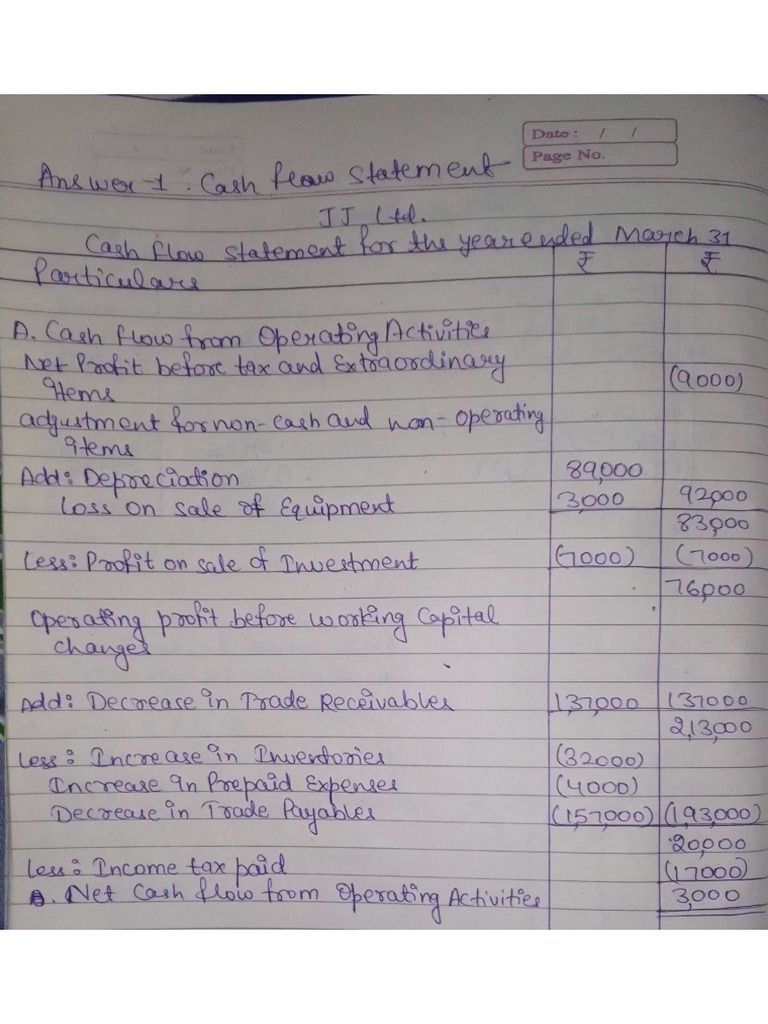 Date : / /
Page No.
Answer 1 : Cash flow statement
JJ Ltd.
Cash flow statement for the year ended March 31
Particulars ₹ ₹
A. Cash flow from Operating Activities
Net Profit before tax and Extraordinary
Items (9000)
adjustment for non-cash and non-operating
items
Add: Depreciation 89,000
Loss on sale of Equipment 3,000 92,000
83,000
Less: Profit on sale of Investment (7000) (7000)
76,000
Operating profit before working Capital
changes
Add: Decrease in Trade Receivables 1,37,000 137000
2,13,000
Less: Increase in Inventories (32000)
Increase in Prepaid Expenses (4000)
Decrease in Trade Payables (1,57,000) (1,93,000)
20,000
Less: Income tax paid (17000)
. Net Cash flow from Operating Activities 3,000